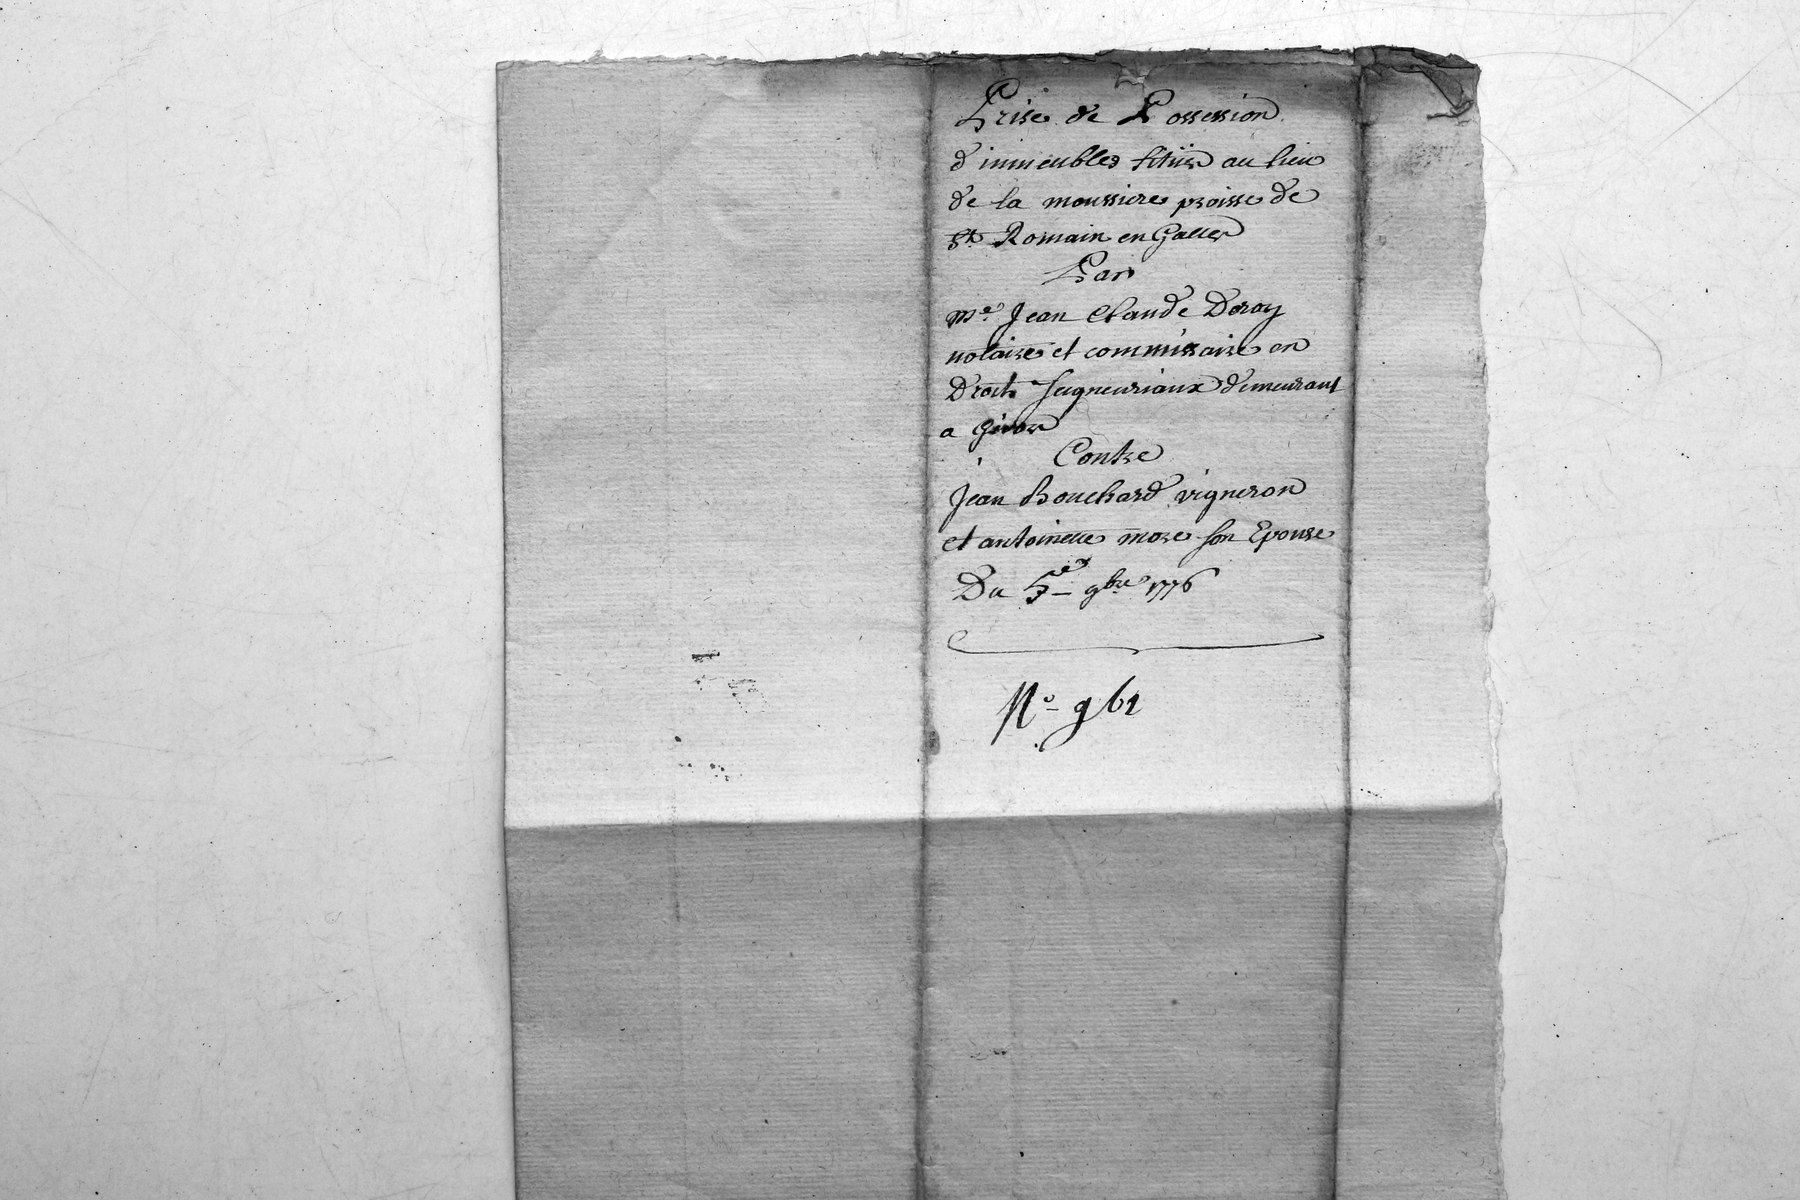 Prise de Possession
d'immeubles situés au lieu
de la moussiere proisse de
St. Romain en Galles
Par
me. Jean Claude Doray
notaire et commissaire en
Droits seigneuriaux demeurant
a Givors
Contre
Jean Bouchard vigneron
et antoinette more son Epouse
Du 5e 9bre 1776
No 961